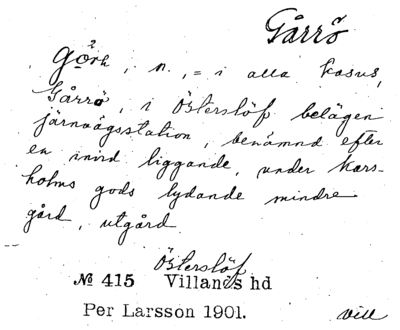 Gårrö
gårh, n., = i alla kasus,
Gårrö, i Österslöf belägen
järnvägsstation, benämnd efter
en invid liggande, under Kars-
holms gods lydande mindre
gård, utgård
Österslöf
№ 415 Villands hd
Per Larsson 1901.
vill